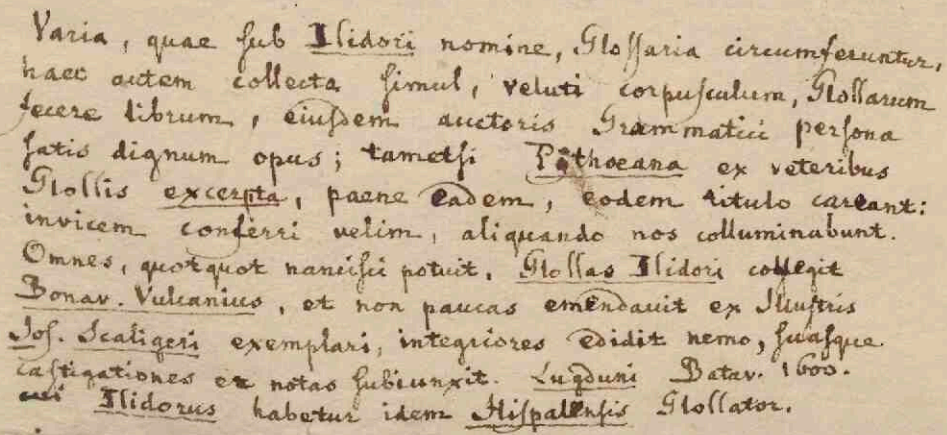 Varia, quae sub Isidori nomine, Glossaria circumferuntur,
haec autem collecta simul, veluti corpusculum, Glossarum
fecere librum, eiusdem auctoris Grammatici persona
satis dignum opus; tametsi Pithoeana ex veteribus
Glossis excerpta, paene eadem, eodem titulo careant:
invicem conferri velim, aliquando nos colluminabunt.
Omnes, quotquot nancisci potuit, Glossas Isidori collegit
Bonav. Vulcanius, et non paucas emendavit ex Illustris
Jos. Scaligeri exemplari, integriores edidit nemo, suasque
castigationes et notas subiunxit. Lugduni Batav. 1600.
cui Isidorus habetur idem Hispalensis Glossator.